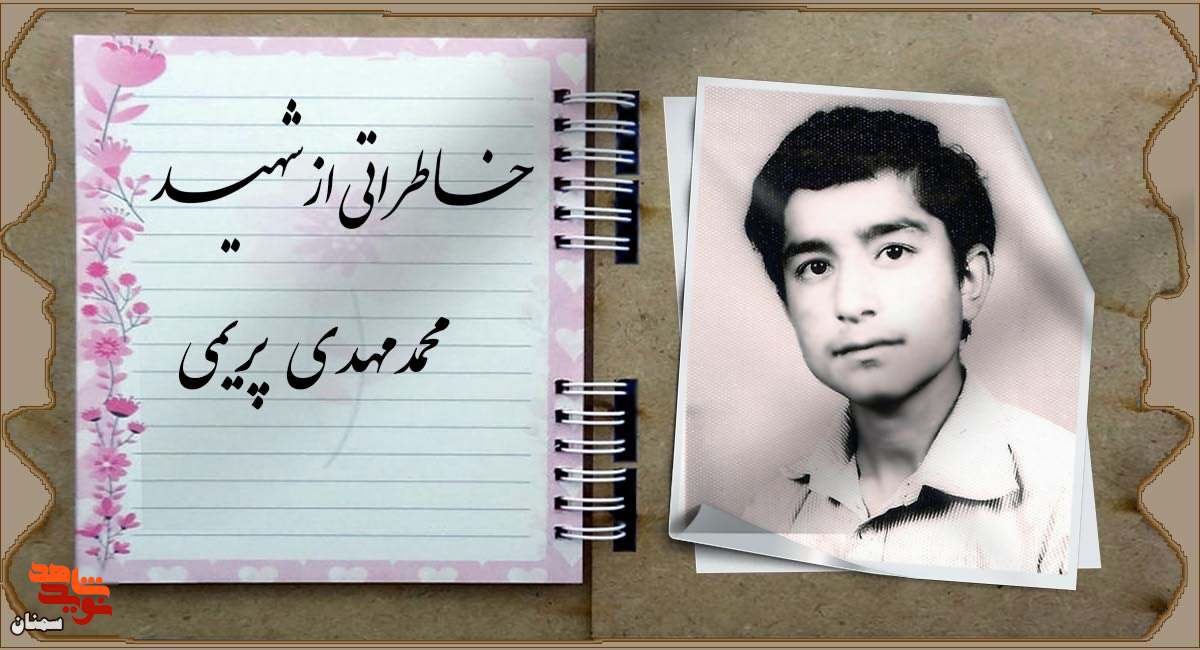 خاطراتی از شهید
محمدمهدی پریمی
نوید شاهد
سمنان